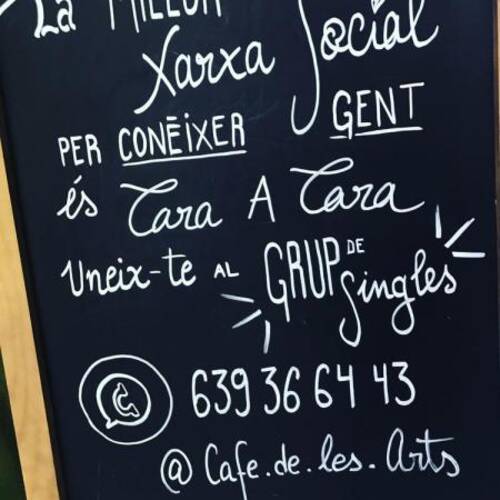 La MILLOR
Xarxa Social
PER CONĒIXER GENT
és Cara A Cara
Uneix-te AL GRUP DE Singles
639 36 64 43
@ Cafe.de.les.Arts